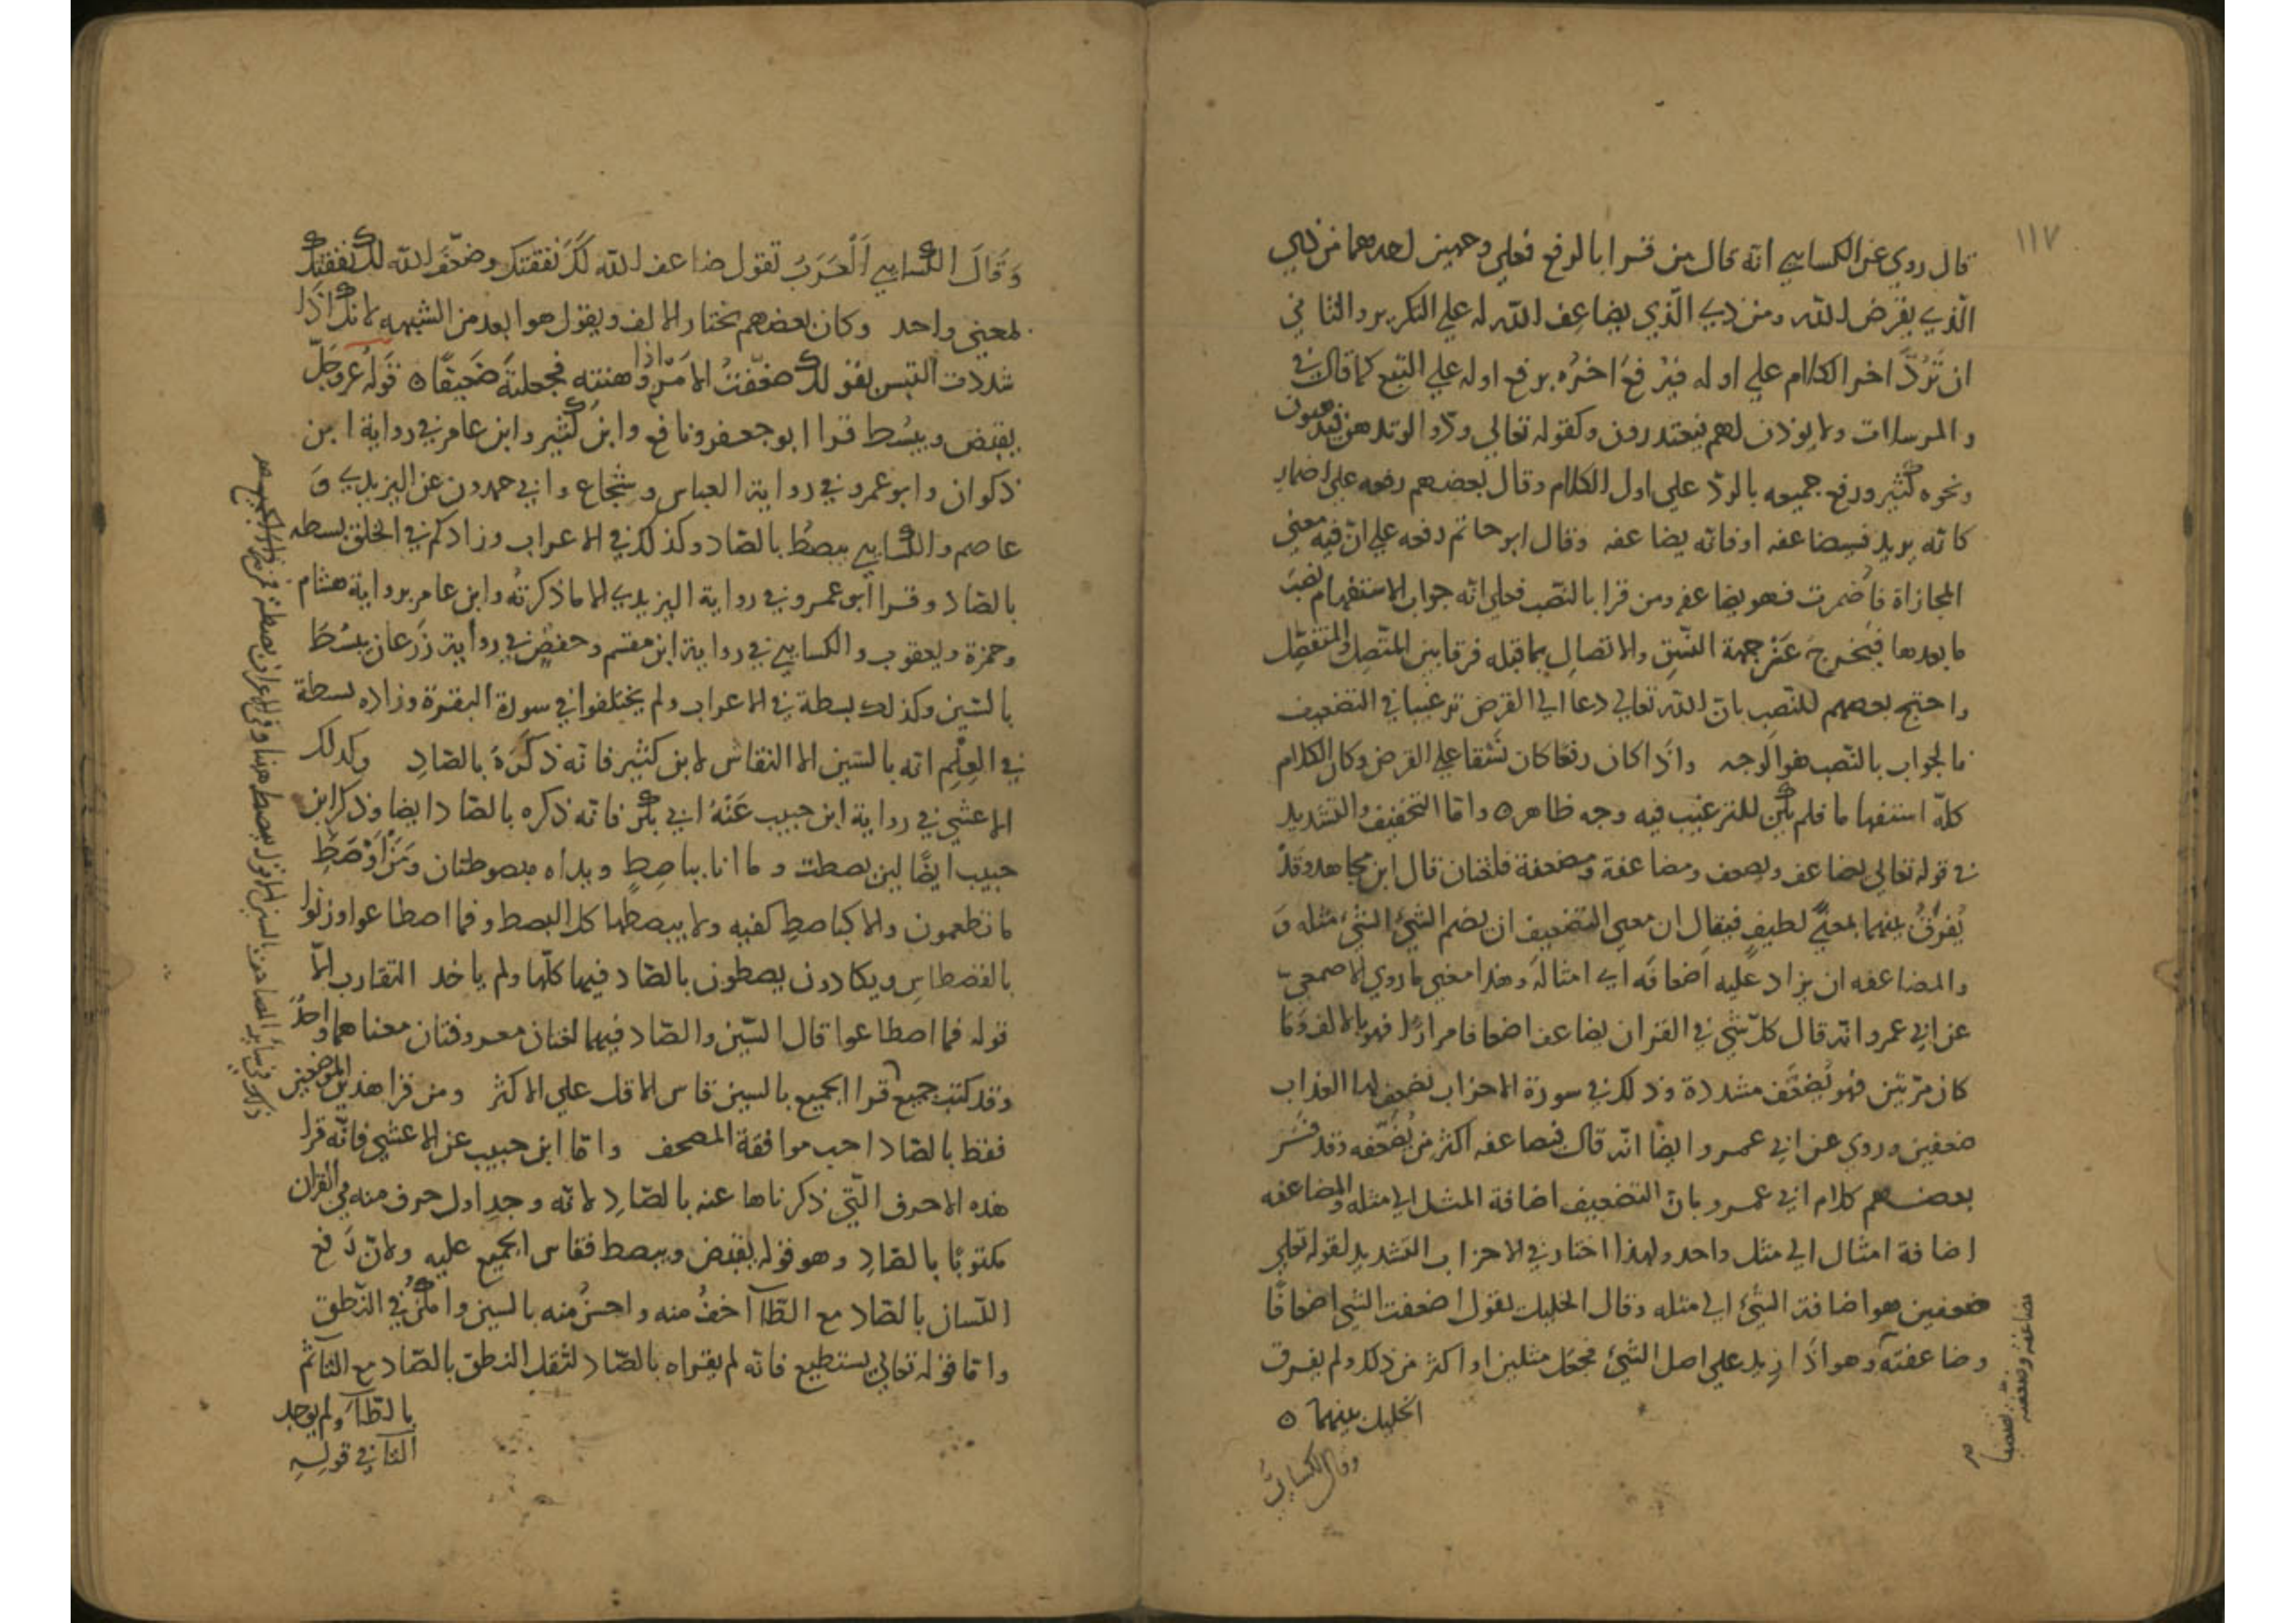 ١١٧
قال روي عن الكساي انه قال من قرا بالرفع فعلي وجهين احدهما من ذي
الذي يقرض الله ومن ذي الذي يضاعف الله له علي التكرير والثاني
ان تَرُدَّ اخر الكلام علي اوله فيرفع اخره برفع اوله علي التبع كما قال في
والمرسلات ولا يوذن لهم فيعتذرون وكقوله تعالي ودّوا لو تدهن فيدهنون
ونحوه كثير ورفع جميعه بالردّ علي اول الكلام وقال بعضهم رفعه علي اضمار
كانه يريد فيضاعفه او فانه يضاعفه وقال ابو حاتم رفعه علي انّ فيه معني
المجازاة فاضمرت فهو يضاعفه ومن قرا بالنصب فعلي انه جواب الاستفهام نصب
ما بعدها فيخرج عَنْ جهة النسق والاتصال بما قبله فرقا بين المتصل والمنفصل
واحتج بعضهم للنصب بانّ الله تعالي دعا الي القرض ترغيبا في التضعيف
فالجواب بالنصب هو الوجه واذا كان رفعا كان نسقا علي القرض وكان الكلام
كلّه استفهاما فلم يكن للترغيب فيه وجه ظاهر ه واما التخفيف والتشديد
في قوله تعالي يضاعف ويضعف ومضاعفة ومضعفة فلغتان قال ابن مجاهد وقد
يُفرّقُ بينهما بمعنًي لطيفٍ فيقال ان معني التضعيف ان يضم الشئ الشئ مثله وَ
والمضاعفه ان يزاد عليه اَضعافه اي امثاله وهذا معني ما روي الاصمعي
عن ابي عمرو انه قال كلّ شي في القران يضاعف اضعافا مرارًا فهو بالالف وَما
كان مرّتين فهو يُضعّف مشددة وذلك في سورة الاحزاب نضعف لها العذاب
ضعفين وروي عن ابي عمرو ايضًا انه قال فيضاعفه اكثر من يُضعّفه وقد فسّر
بعضهم كلام ابي عمرو بانّ التضعيف اضافة المثل الي مثله والمضاعفه
اضافة امثال الي مثل واحد ولهذا اختار في الاحزاب التشديد لقوله تعلي
ضعفين هو اضافة الشئ الي مثله وقال الخليل تقول اضعفت الشي اضعافًا
وضاعفته وهو اذا زيد علي اصل الشئ فجعل مثلين او اكثر من ذلك ولم يفرق
الخليل بينهما ه
وقال الكسايُّ
مضاعفة وضعفته تضعيفا
وَقَالَ الكساي اَلْعَرَبُ تقول ضاعف الله لَكَ نَفَقتك وضعّف الله لك نفقتك
بمعني واحد وكان بعضهم يختار الالف ويقول هو ابعد من الشبهه لانك اذا
شددت التبس بقولك ضعّفتُ الامر اذا وهنته فجعلتهَ ضَعيفًا ه قوله عز وجلّ
يقبض ويبسُط قرا ابو جعفر ونافع وابن كثير وابن عامر في رواية ابن
ذكوان وابو عمرو في رواية العباس وشجاع وابي حمدون عن اليزيدي وَ
عاصم والكساي يبصطُ بالصّاد وكذلك في الاعراب وزادكم في الخلق بسطه
بالصّاد وقرا ابو عمرو في رواية اليزيدي الا ما ذكرتُه وابن عامر برواية هشام
وحمزة ويعقوب والكساي في رواية ابن مقسم وحفصٍ في رواية زَرعان يبسُطَ
بالسّين وكذلك بسطة في الاعراب ولم يختلفوا في سورة البقرة وزاده بسطة
في العِلْمِ انه بالسّين الا النقاش لابن كثير فانه ذكَرَهَ بالصّادِ وكذلك
الاعشي في رواية ابن حبيب عَنْهُ ابي بكر فانه ذكره بالصّاد ايضا وذكر ابن
حبيب ايضًا لين بصطت وما انا بباصِطٍ ويداه مبصوطتان ومَنْ اَوْصَطِ
ما تطعمون والا كباصطِ كفيه ولا يبصطها كل البصط وفما اصطاعوا وزنوا
بالقصطاسِ ويكادون يصطون بالصّاد فيها كلّها ولم ياخذ التقارب الّا
قوله فما اصطاعوا قال السّين والصّاد فيهما لغتان معروفتان معناهما واحدٌ
وقد كتب جميع قرا الجميع بالسين قاس الاقل علي الاكثر ومن قرا هذين الموضعين
فقط بالصّاد احب موافقة المصحف واما ابن حبيب عن الاعشي فانّه قرا
هذه الاحرف الّتي ذكرناها عنه بالصّادِ لانه وجد اول حرف منه في القران
مكتوبًا بالصّادِ وهو قوله يقبض ويبصط فقاس الجميع عليه ولانّ رَفع
اللسان بالصّاد مع الطّآ اخفُ منه واحسنُ منه بالسين وامكنُ في النّطق
واما قوله تعالي يستطيع فانه لم يقراه بالصّاد لثقل النطق بالصّاد مع التاثم
بالطّآ ولم يوجد
الثاني في قولهِ